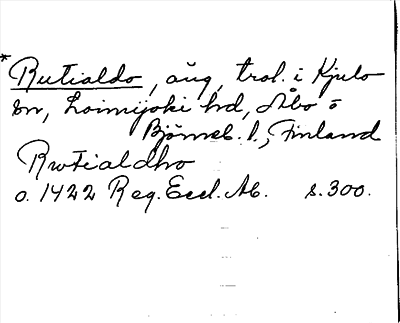 * Rutialdo, äng, trol. i Kjulo
sn, Loimijoki hd, Åbo o
Björneb. l., Finland
Rwtialdho
o. 1422 Reg. Eccl. Ab. s. 300.